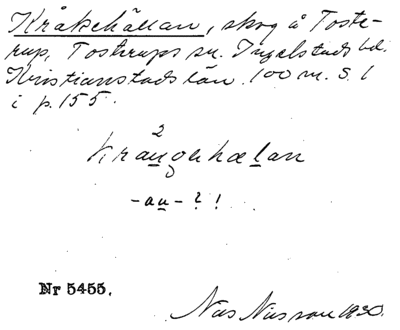 Kråkehällan, skog å Toste-
rup, Tosterups sn. Ingelstads hd.
Kristianstads län. 100 m. S. l
i p. 155.
2
kraŋgehælan
- au - ? !
Nr 5455.
Nils Nilsson 1930.